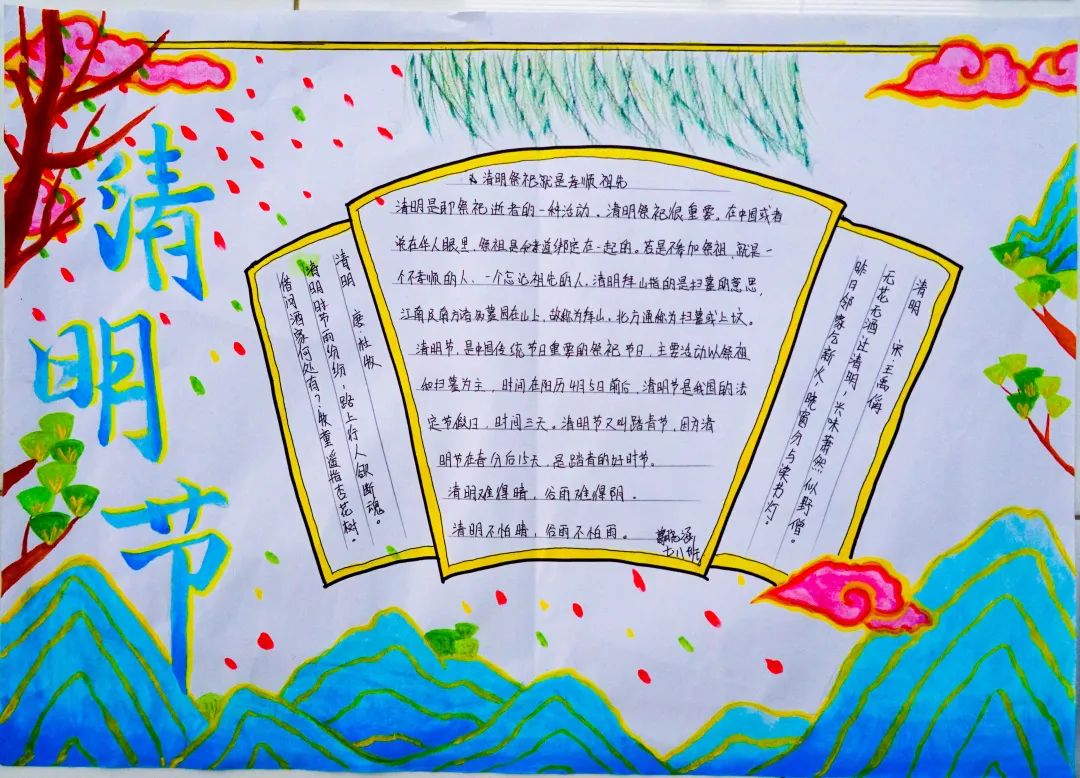 清明节
清明祭祀就是孝顺祖先
清明是即祭祀逝者的一种活动、清明祭祀很重要。在中国或者
说在华人眼里，祭祖是和孝道绑定在一起的。若是不参加祭祖，就是一
个不孝顺的人、一个忘记祖先的人。清明拜山指的是扫墓的意思，
江南及南方诸多墓园在山上，故称为拜山。北方通称为扫墓或上坟。
清明节，是中国传统节日重要的祭祀节日，主要活动以祭祖
和扫墓为主，时间在阳历4月5日前后，清明节是我国的法
定节假日，时间三天。清明节又叫踏青节，因为清
明节在春分后15天，是踏青的好时节。
清明难得晴，谷雨难得阴。
清明不怕晴，谷雨不怕雨。
涵
清明 唐·杜牧
清明时节雨纷纷，路上行人欲断魂。
借问酒家何处有？牧童遥指杏花树。
清明 宋 王禹偁
无花无酒过清明，兴味萧然似野僧。
昨日邻家乞新火，晓窗分与读书灯。